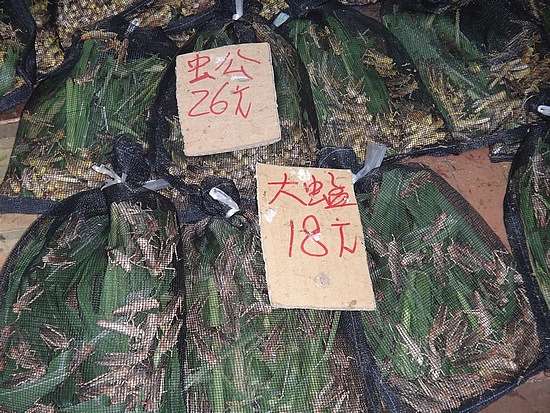 虫公
26元
大蜢
18元